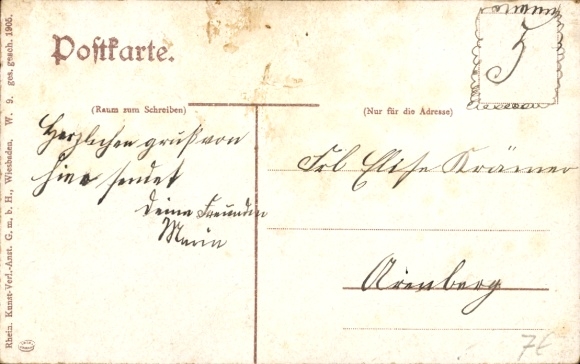 Postkarte.
5
(Raum zum Schreiben)
(Nur für die Adresse)
Herzlichen gruß von
hier sendet
Deine Freundin
Frl Elise Krämer
Arenberg
7€
Rhein. Kunst-Verl.-Anst. G. m. b. H., Wiesbaden, W. 9. ges. gesch. 1905.